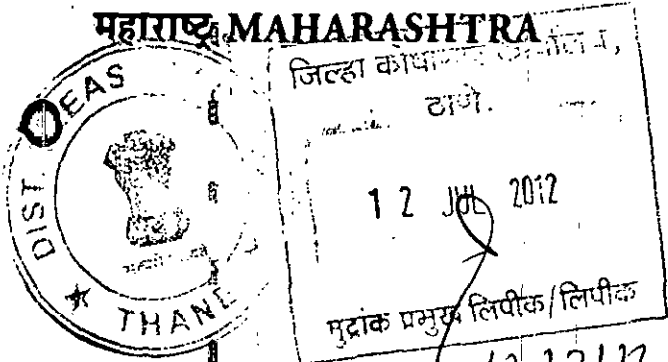 महाराष्ट्र MAHARASHTRA
DIST. TREAS
THANE
जिल्हा कोषागार
ठाणे.
12 JUL 2012
मुद्रांक प्रमुख लिपीक/लिपीक